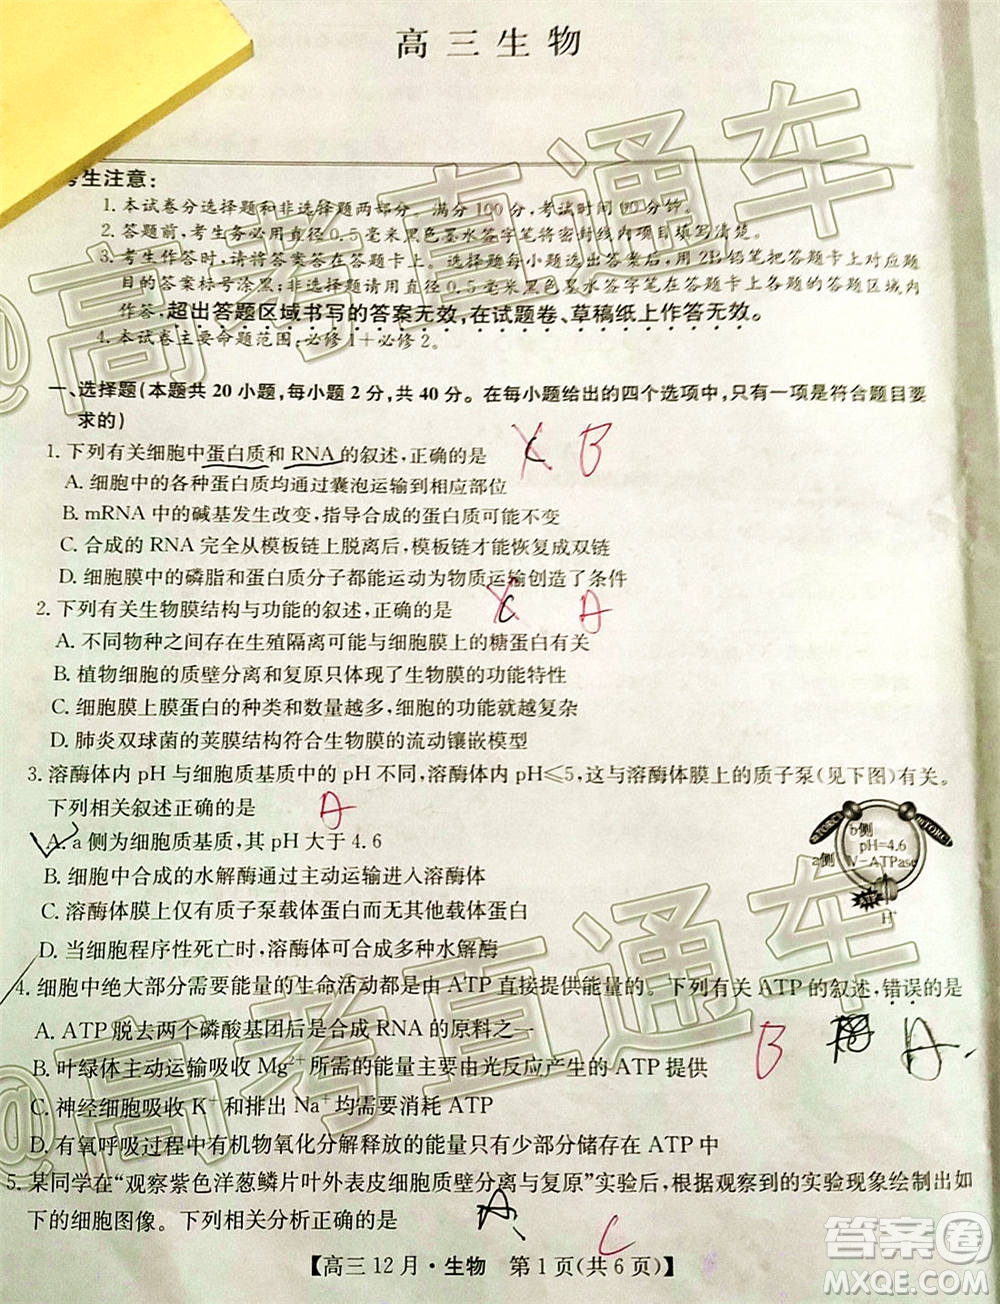 高三生物
考生注意:
1. 本试卷分选择题和非选择题两部分。满分100分,考试时间90分钟。
2. 答题前,考生务必用直径0.5毫米黑色墨水签字笔将密封线内项目填写清楚。
3. 考生作答时,请将答案答在答题卡上。选择题每小题选出答案后,用2B铅笔把答题卡上对应题目
的答案标号涂黑;非选择题请用直径0.5毫米黑色墨水签字笔在答题卡上各题的答题区域内
作答,超出答题区域书写的答案无效,在试题卷、草稿纸上作答无效。
4. 本试卷主要命题范围:必修1+必修2。
一、选择题(本题共20小题,每小题2分,共40分。在每小题给出的四个选项中,只有一项是符合题目要
求的)
1. 下列有关细胞中蛋白质和RNA的叙述,正确的是 C B
A. 细胞中的各种蛋白质均通过囊泡运输到相应部位
B. mRNA中的碱基发生改变,指导合成的蛋白质可能不变
C. 合成的RNA完全从模板链上脱离后,模板链才能恢复成双链
D. 细胞膜中的磷脂和蛋白质分子都能运动为物质运输创造了条件
2. 下列有关生物膜结构与功能的叙述,正确的是 C A
A. 不同物种之间存在生殖隔离可能与细胞膜上的糖蛋白有关
B. 植物细胞的质壁分离和复原只体现了生物膜的功能特性
C. 细胞膜上膜蛋白的种类和数量越多,细胞的功能就越复杂
D. 肺炎双球菌的荚膜结构符合生物膜的流动镶嵌模型
3. 溶酶体内pH与细胞质基质中的pH不同,溶酶体内pH≤5,这与溶酶体膜上的质子泵(见下图)有关。
下列相关叙述正确的是 A
A. a侧为细胞质基质,其pH大于4.6
B. 细胞中合成的水解酶通过主动运输进入溶酶体
C. 溶酶体膜上仅有质子泵载体蛋白而无其他载体蛋白
D. 当细胞程序性死亡时,溶酶体可合成多种水解酶
b侧
pH=4.6
a侧
V-ATPase
H⁺
4. 细胞中绝大部分需要能量的生命活动都是由ATP直接提供能量的。下列有关ATP的叙述,错误的是
A. ATP脱去两个磷酸基团后是合成RNA的原料之一
B A
B. 叶绿体主动运输吸收Mg²⁺所需的能量主要由光反应产生的ATP提供
C. 神经细胞吸收K⁺和排出Na⁺均需要消耗ATP
D. 有氧呼吸过程中有机物氧化分解释放的能量只有少部分储存在ATP中
5. 某同学在“观察紫色洋葱鳞片叶外表皮细胞质壁分离与复原”实验后,根据观察到的实验现象绘制出如
下的细胞图像。下列相关分析正确的是 A C
【高三12月·生物 第1页(共6页)】
@高考直通车
@高考直通车
答案圈
MXQE.COM